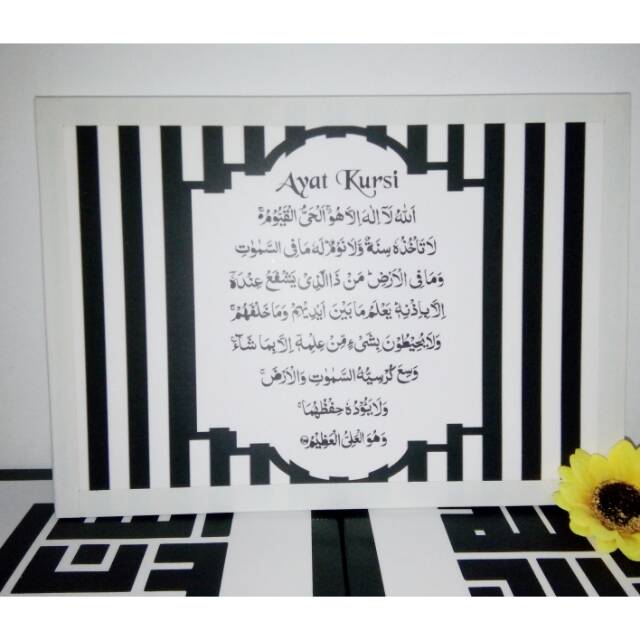 Ayat Kursi
اَللّٰهُ لَآ اِلٰهَ اِلَّا هُوَ ۚ اَلْحَيُّ الْقَيُّوْمُ ەۚ
لَا تَأْخُذُهٗ سِنَةٌ وَّلَا نَوْمٌ ۗ لَهٗ مَا فِى السَّمٰوٰتِ
وَمَا فِى الْاَرْضِ ۗ مَنْ ذَا الَّذِيْ يَشْفَعُ عِنْدَهٗٓ
اِلَّا بِاِذْنِهٖ ۗ يَعْلَمُ مَا بَيْنَ اَيْدِيْهِمْ وَمَا خَلْفَهُمْ ۚ
وَلَا يُحِيْطُوْنَ بِشَيْءٍ مِّنْ عِلْمِهٖٓ اِلَّا بِمَا شَاۤءَ ۚ
وَسِعَ كُرْسِيُّهُ السَّمٰوٰتِ وَالْاَرْضَ ۚ
وَلَا يَـُٔوْدُهٗ حِفْظُهُمَا ۚ
وَهُوَ الْعَلِيُّ الْعَظِيْمُ